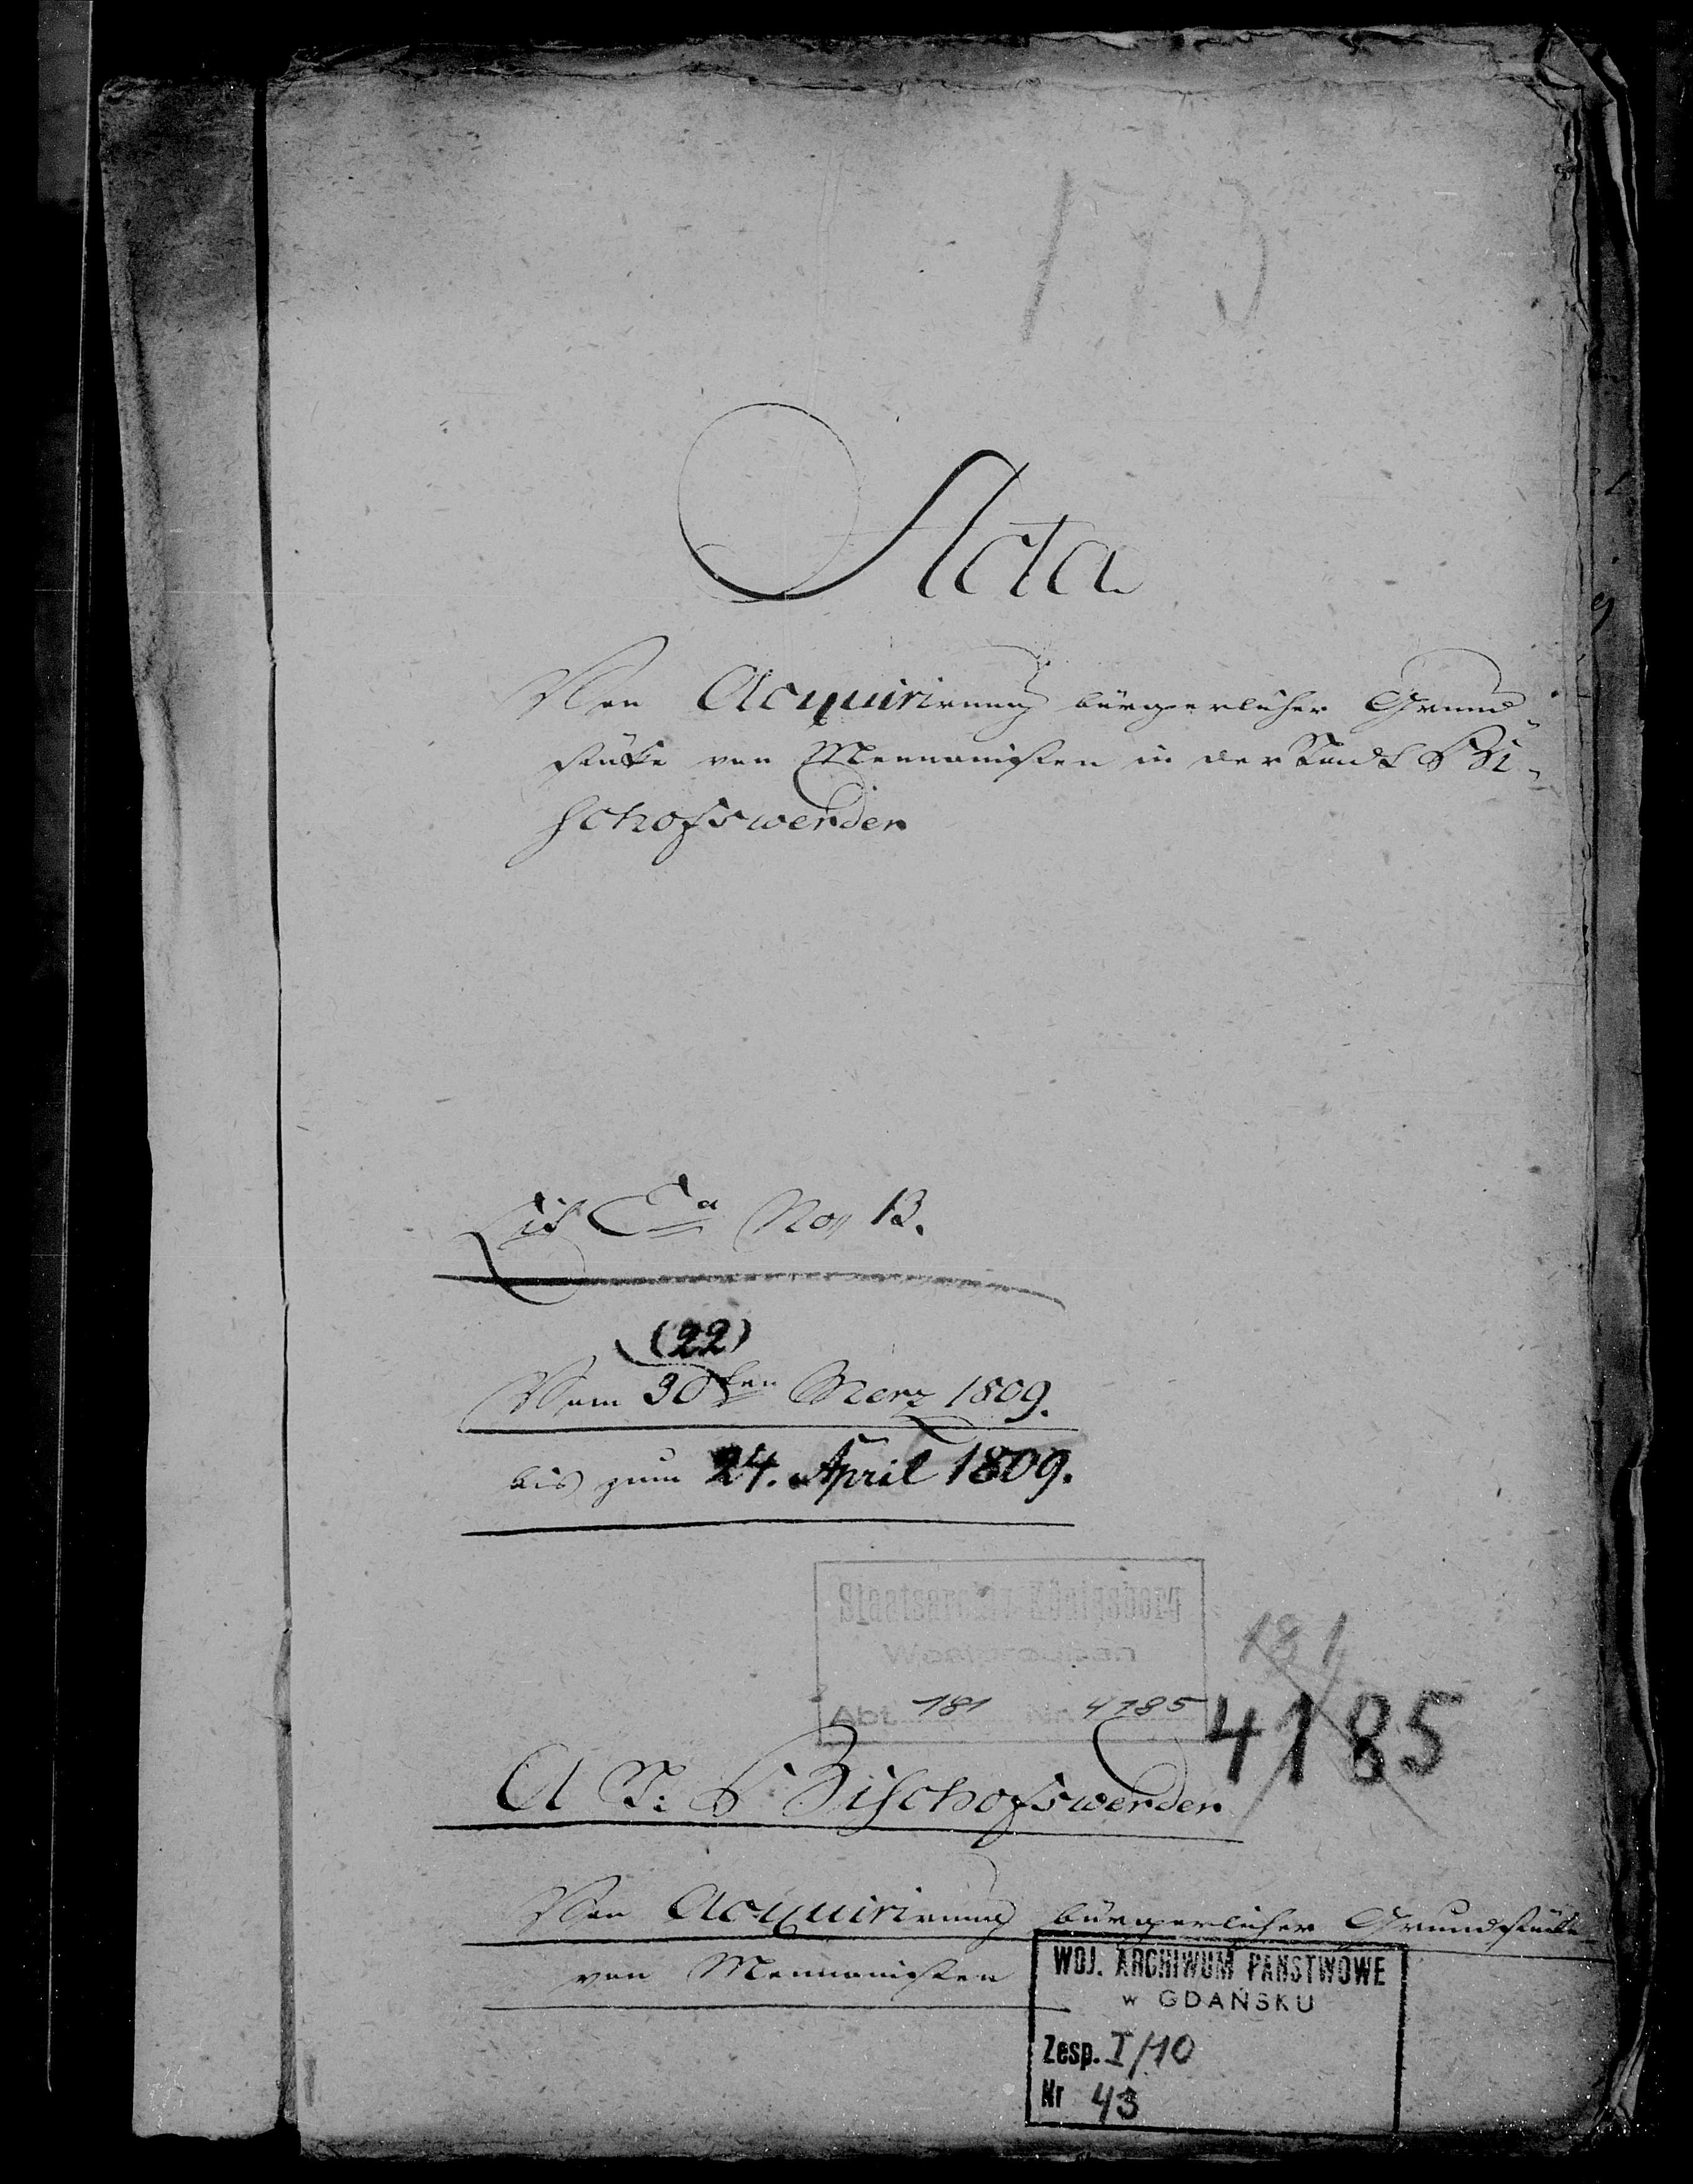 173
Acta
Von Acquirirung bürgerlicher Grund
stücke von Mennonisten in der Stadt Bi-
schofswerder
Lit C a No 13.
(22)
Vom 30ten Merz 1809.
bis zum 24. April 1809.
Staatsarchiv Königsberg
Westpreußen
Abt 181 Nr. 4185
181
4185
A V: B Bischofswerder
Von Acquirirung bürgerlicher Grundstücke
von Mennonisten
WOJ. ARCHIWUM PAŃSTWOWE
w GDAŃSKU
Zesp. I/10
Nr 43